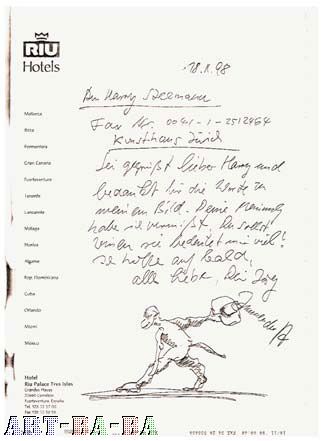 RIU
Hotels
18.11.98
An Harry Szeemann
Fax Nr. 0041-1-2512464
Kunsthaus Zürich
Sei gegrüßt lieber Harry und
bedankt für die Worte zu
meinem Bild. Deine Meinung
habe ich vermißt. Du sollst
wissen sie bedeutet mir viel!
Ich hoffe auf bald,
alles Liebe, Dein Jörg
Mallorca
Ibiza
Formentera
Gran Canaria
Fuerteventura
Tenerife
Lanzarote
Málaga
Huelva
Algarve
Rep. Dominicana
Cuba
Orlando
Miami
México
Hotel
Riu Palace Tres Islas
Grandes Playas
35660 Corralejo
Fuerteventura. España
ART-BA-BA